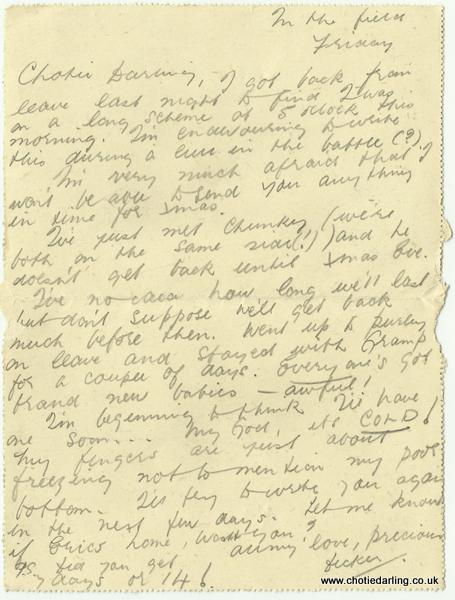 In the field
Friday
Chotie Darling, I got back from
leave last night to find I was
on a long scheme at 5 o'clock this
morning. I'm endeavouring to write
this during a lull in the battle (?)
I'm very much afraid that I
won't be able to send you anything
in time for Xmas.
I've just met Chunkey (we're
both on the same side!) and he
doesn't get back until Xmas Eve.
I've no idea how long we'll last
but don't suppose we'll get back
much before then. Went up to Purley
on leave and stayed with Gramp
for a couple of days. Everyone's got
brand new babies – awful!
I'm beginning to think I'll have
one soon.... My God, it's COLD!
My fingers are just about
freezing not to mention my poor
bottom. I'll try to write you again
in the next few days. Let me know
if Eric's home, won't you?
All my love, precious
Did you get
days or 14?
www.chotiedarling.co.uk